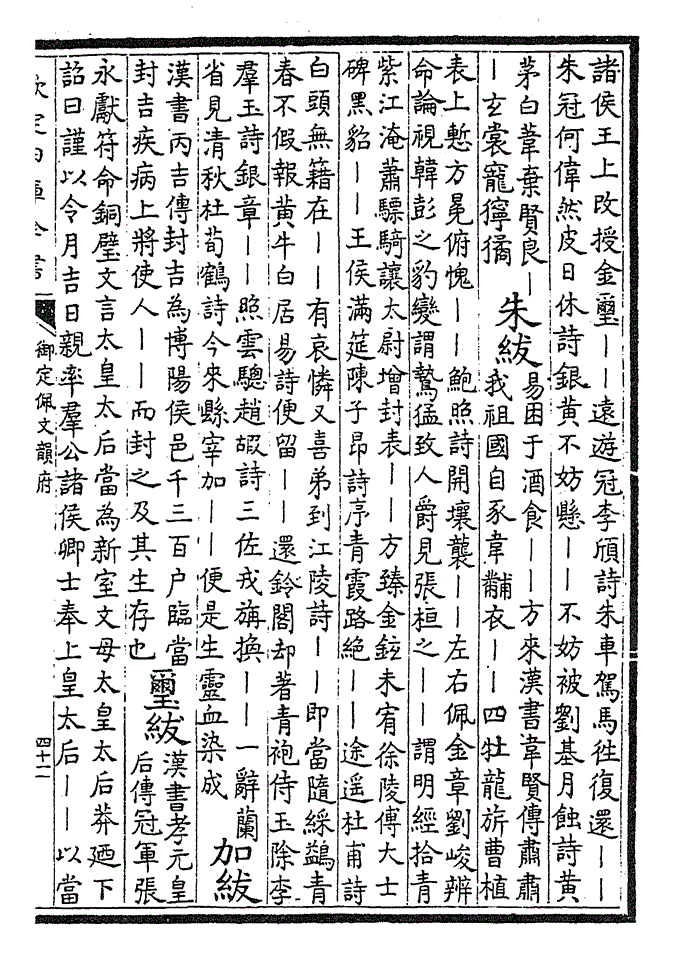 諸侯王上改授金璽——遠遊冠李頎詩朱車駕馬徃復還——
朱冠何偉然皮日休詩銀黄不妨懸——不妨被劉基月蝕詩黄
茅白葦棄賢良—
—玄裳寵獰獝
朱紱
易困于酒食——方來漢書韋賢傳肅肅
我祖國自豕韋黼衣——四牡龍旂曹植
表上慙方冕俯愧——鮑照詩開壤襲——左右佩金章劉峻辨
命論視韓彭之豹變謂鷙猛致人爵見張桓之——謂明經拾青
紫江淹蕭驃騎讓太尉增封表——方臻金鉉未宥徐陵傅大士
碑黑貂——王侯滿筵陳子昂詩序青霞路絶——途遥杜甫詩
白頭無籍在——有哀憐又喜弟到江陵詩——即當隨綵鷁青
春不假報黄牛白居易詩便留——還鈴閣却著青袍侍玉除李
羣玉詩銀章——照雲驄趙嘏詩三佐戎旃換——一辭蘭
省見清秋杜荀鶴詩今來縣宰加——便是生靈血染成
加紱
漢書丙吉傳封吉為博陽侯邑千三百户臨當
封吉疾病上將使人——而封之及其生存也
璽紱
漢書孝元皇
后傳冠軍張
永獻符命銅璧文言太皇太后當為新室文母太皇太后莽廼下
詔曰謹以令月吉日親率羣公諸侯卿士奉上皇太后——以當
欽定四庫全書
御定佩文韻府
四十二